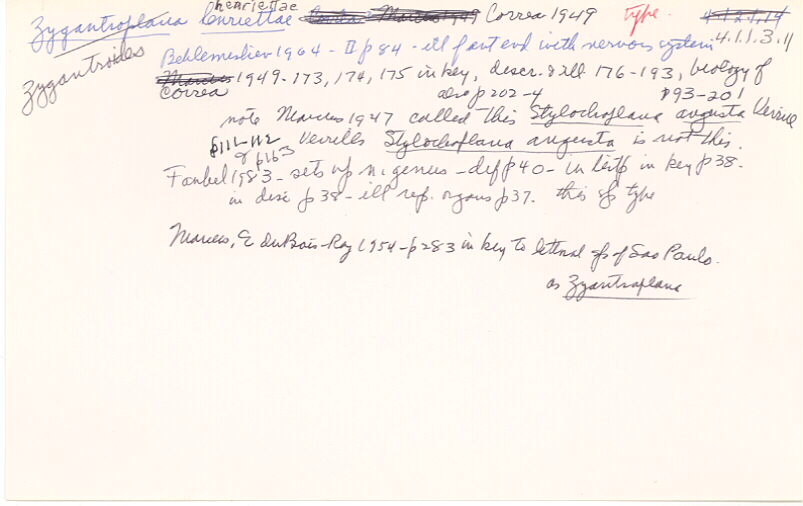 henriettae
Zygantroplana henriettae Marcus 1949 Correa 1949 type. 4.1.2.1.14
Zygantroides 4.1.1.3.11
Beklemeshev 1964 - II p 84 - ill of ant end with nervous system
Marcus 1949 - 173, 174, 175 in key, descr. & ill 176-193, biology of
Correa also p 202-4 193-201
note Marcus 1947 called this Stylochoplana angusta Verrill
p 111-112 Verrills Stylochoplana angusta is not this.
& p 163
Faubel 1983 - sets up n. genus - def p 40 - in list p in key p 38 -
in disc p 38 - ill rep. organs p 37. this sp type
Marcus, E du Bois-Ray 1954 - p 283 in key to littoral sp of Sao Paulo.
as Zygantroplana